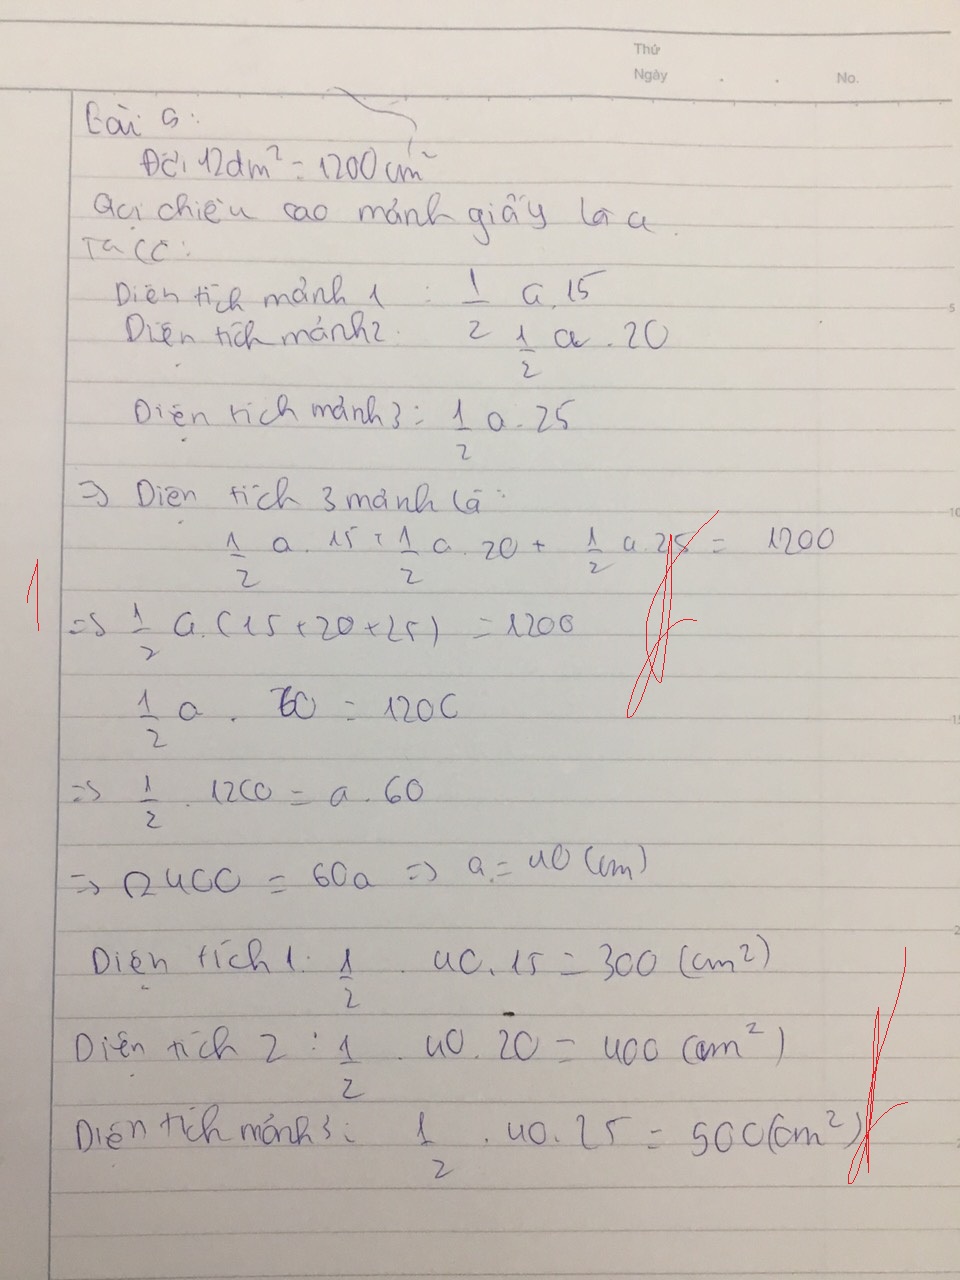 Thứ
Ngày . . No.
Bài 5:
Đổi 12dm² = 1200cm²
Gọi chiều cao mảnh giấy là a.
Ta có:
Diện tích mảnh 1 : 1/2 a.15
Diện tích mảnh 2. 1/2 a.20
Diện tích mảnh 3 = 1/2 a.25
=> Diện tích 3 mảnh là:
1/2 a.15 + 1/2 a.20 + 1/2 a.25 = 1200
1
=> 1/2 a.(15+20+25) = 1200
1/2 a . 60 = 1200
=> 1/2 . 1200 = a.60
=> 2400 = 60a => a = 40 (cm)
Diện tích 1: 1/2 . 40.15 = 300 (cm²)
Diện tích 2 : 1/2 . 40.20 = 400 (cm²)
Diện tích mảnh 3: 1/2 . 40.25 = 500(cm²)